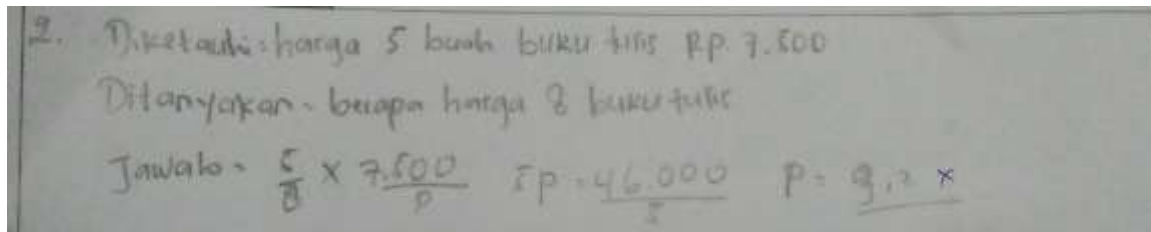 2. Diketahui = harga 5 buah buku tulis Rp. 7.500
Ditanyakan = berapa harga 8 buku tulis
Jawab = 5/8 × 7.500/P 5P = 46.000/5 P = 9,2 ×